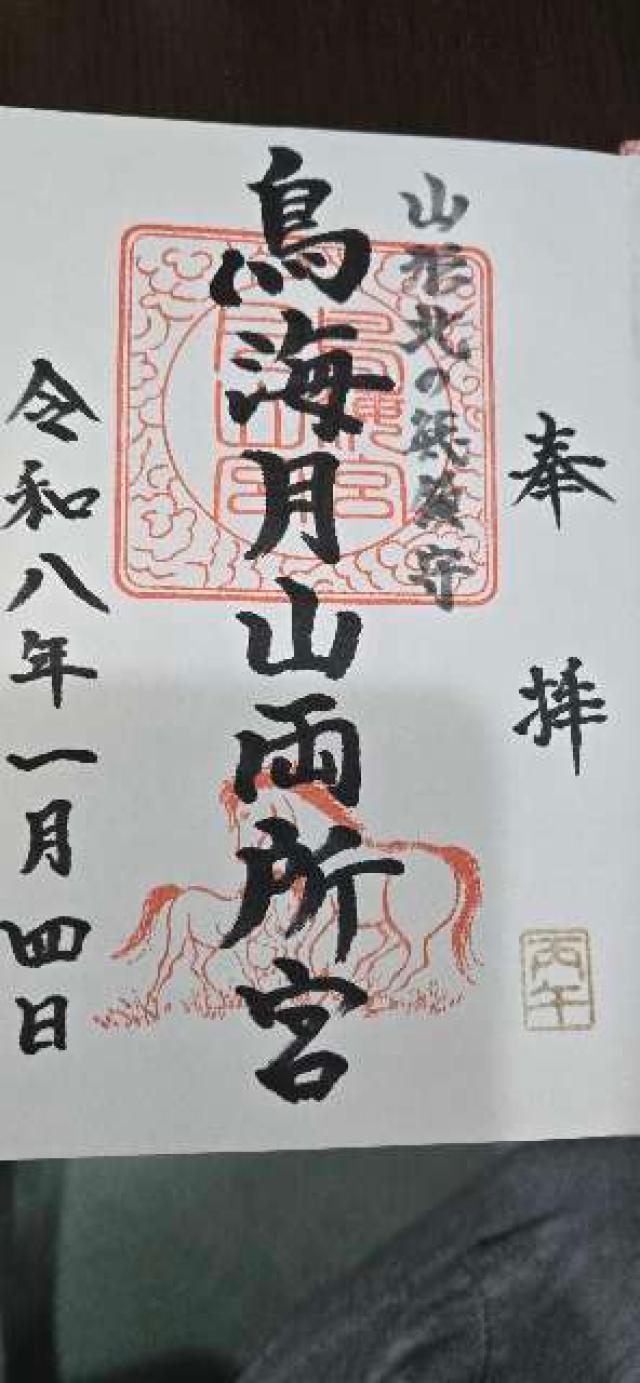 奉拝
丙午
山形北の鎮守
鳥海月山両所宮
令和八年一月四日